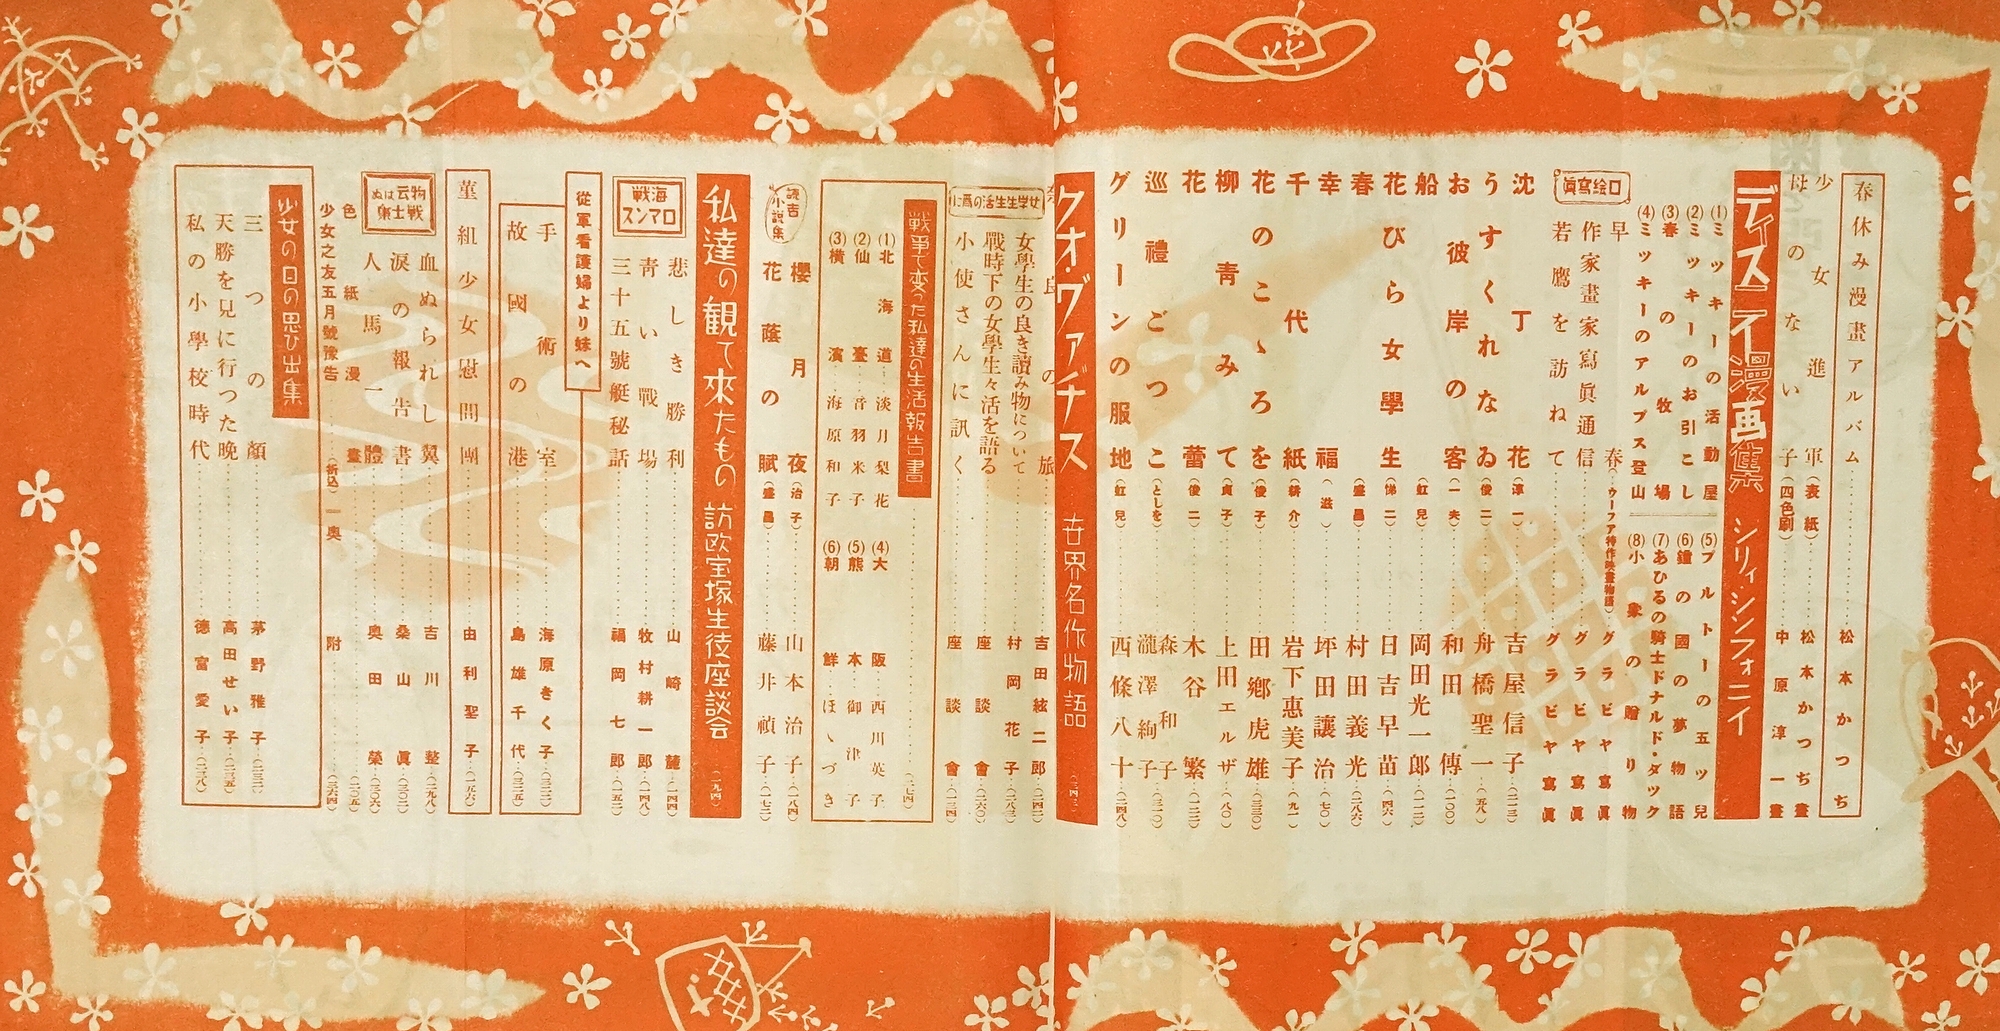 春休み漫畫アルバム……松本かつぢ
少女進軍（表紙）……松本かつぢ畫
母のない子（四色刷）……中原淳一畫
ディズニイ漫画集 シリィ・シンフォニイ
(1)ミッキーの活動屋
(2)ミッキーのお引こし
(3)春の牧場
(4)ミッキーのアルプス登山
(5)プルトーの五ツ兒
(6)鐘の國の夢物語
(7)あひるの騎士ドナルド・ダック
(8)小象の贈り物
口絵寫眞
早春（ウーファ特作映畫物語）グラビヤ寫眞
作家畫家寫眞通信……グラビヤ寫眞
若鷹を訪ねて……グラビヤ寫眞
沈丁花（淳一）……吉屋信子
うすくれなゐ（俊二）……舟橋聖一（五八）
お彼岸の客（一夫）……和田傳（一〇〇）
船（虹兒）……岡田光一郎（一一二）
花びら女學生（悌二）……日吉早苗（四六）
春（盛昌）……村田義光（二八六）
幸福（滋）……坪田讓治（七〇）
千代紙（耕介）……岩下惠美子（九一）
花のこゝろを（俊子）……田鄕虎雄（三三〇）
柳靑みて（貞子）……上田エルザ（八〇）
花蕾（俊二）……木谷繁（一二二）
巡禮ごつこ（としを）……森和子 瀧澤絢子（三一〇）
グリーンの服地（虹兒）……西條八十（二四八）
クオ・ヴァヂス 世界名作物語（三四三）
奈良の旅……吉田絃二郎（二四二）
女學生生活の爲に
女學生の良き讀み物について……村岡花子（二八三）
戰時下の女學生々活を語る……座談會（二六〇）
小使さんに訊く……座談會（二三四）
戦争で変った私達の生活報告書……（二七四）
(1)北海道……淡月梨花
(2)仙臺……音羽米子
(3)横濱……海原和子
(4)大阪……西川英子
(5)熊本……御津子
(6)朝鮮……ほゝづき
読吉小説集
櫻月夜（治子）……山本治子（一八四）
花蔭の賦（盛昌）……藤井禎子（一七二）
私達の観て來たもの 訪欧宝塚生徒座談会（一九四）
海戦ロマンス
悲しき勝利……山崎（一四四）
靑い戰場……牧村耕一郎（一四八）
三十五號艇秘話……福岡七郎（一五二）
從軍看護婦より妹へ
手術室……海原きく子（三二二）
故國の港……島雄千代（三二五）
菫組少女慰問團……由利聖子（一五六）
物云はぬ戰士集
血ぬられし翼……吉川整（二九八）
涙の報告書……桑山眞（三〇二）
人馬一體……奥田榮（三〇六）
色紙漫畫……（二〇五）
少女之友五月號豫告……（折込）一奥附（三六四）
少女の日の思ひ出集
三つの顏……茅野雅子（二三二）
天勝を見に行つた晩……高田せい子（二三五）
私の小學校時代……德富愛子（二三八）